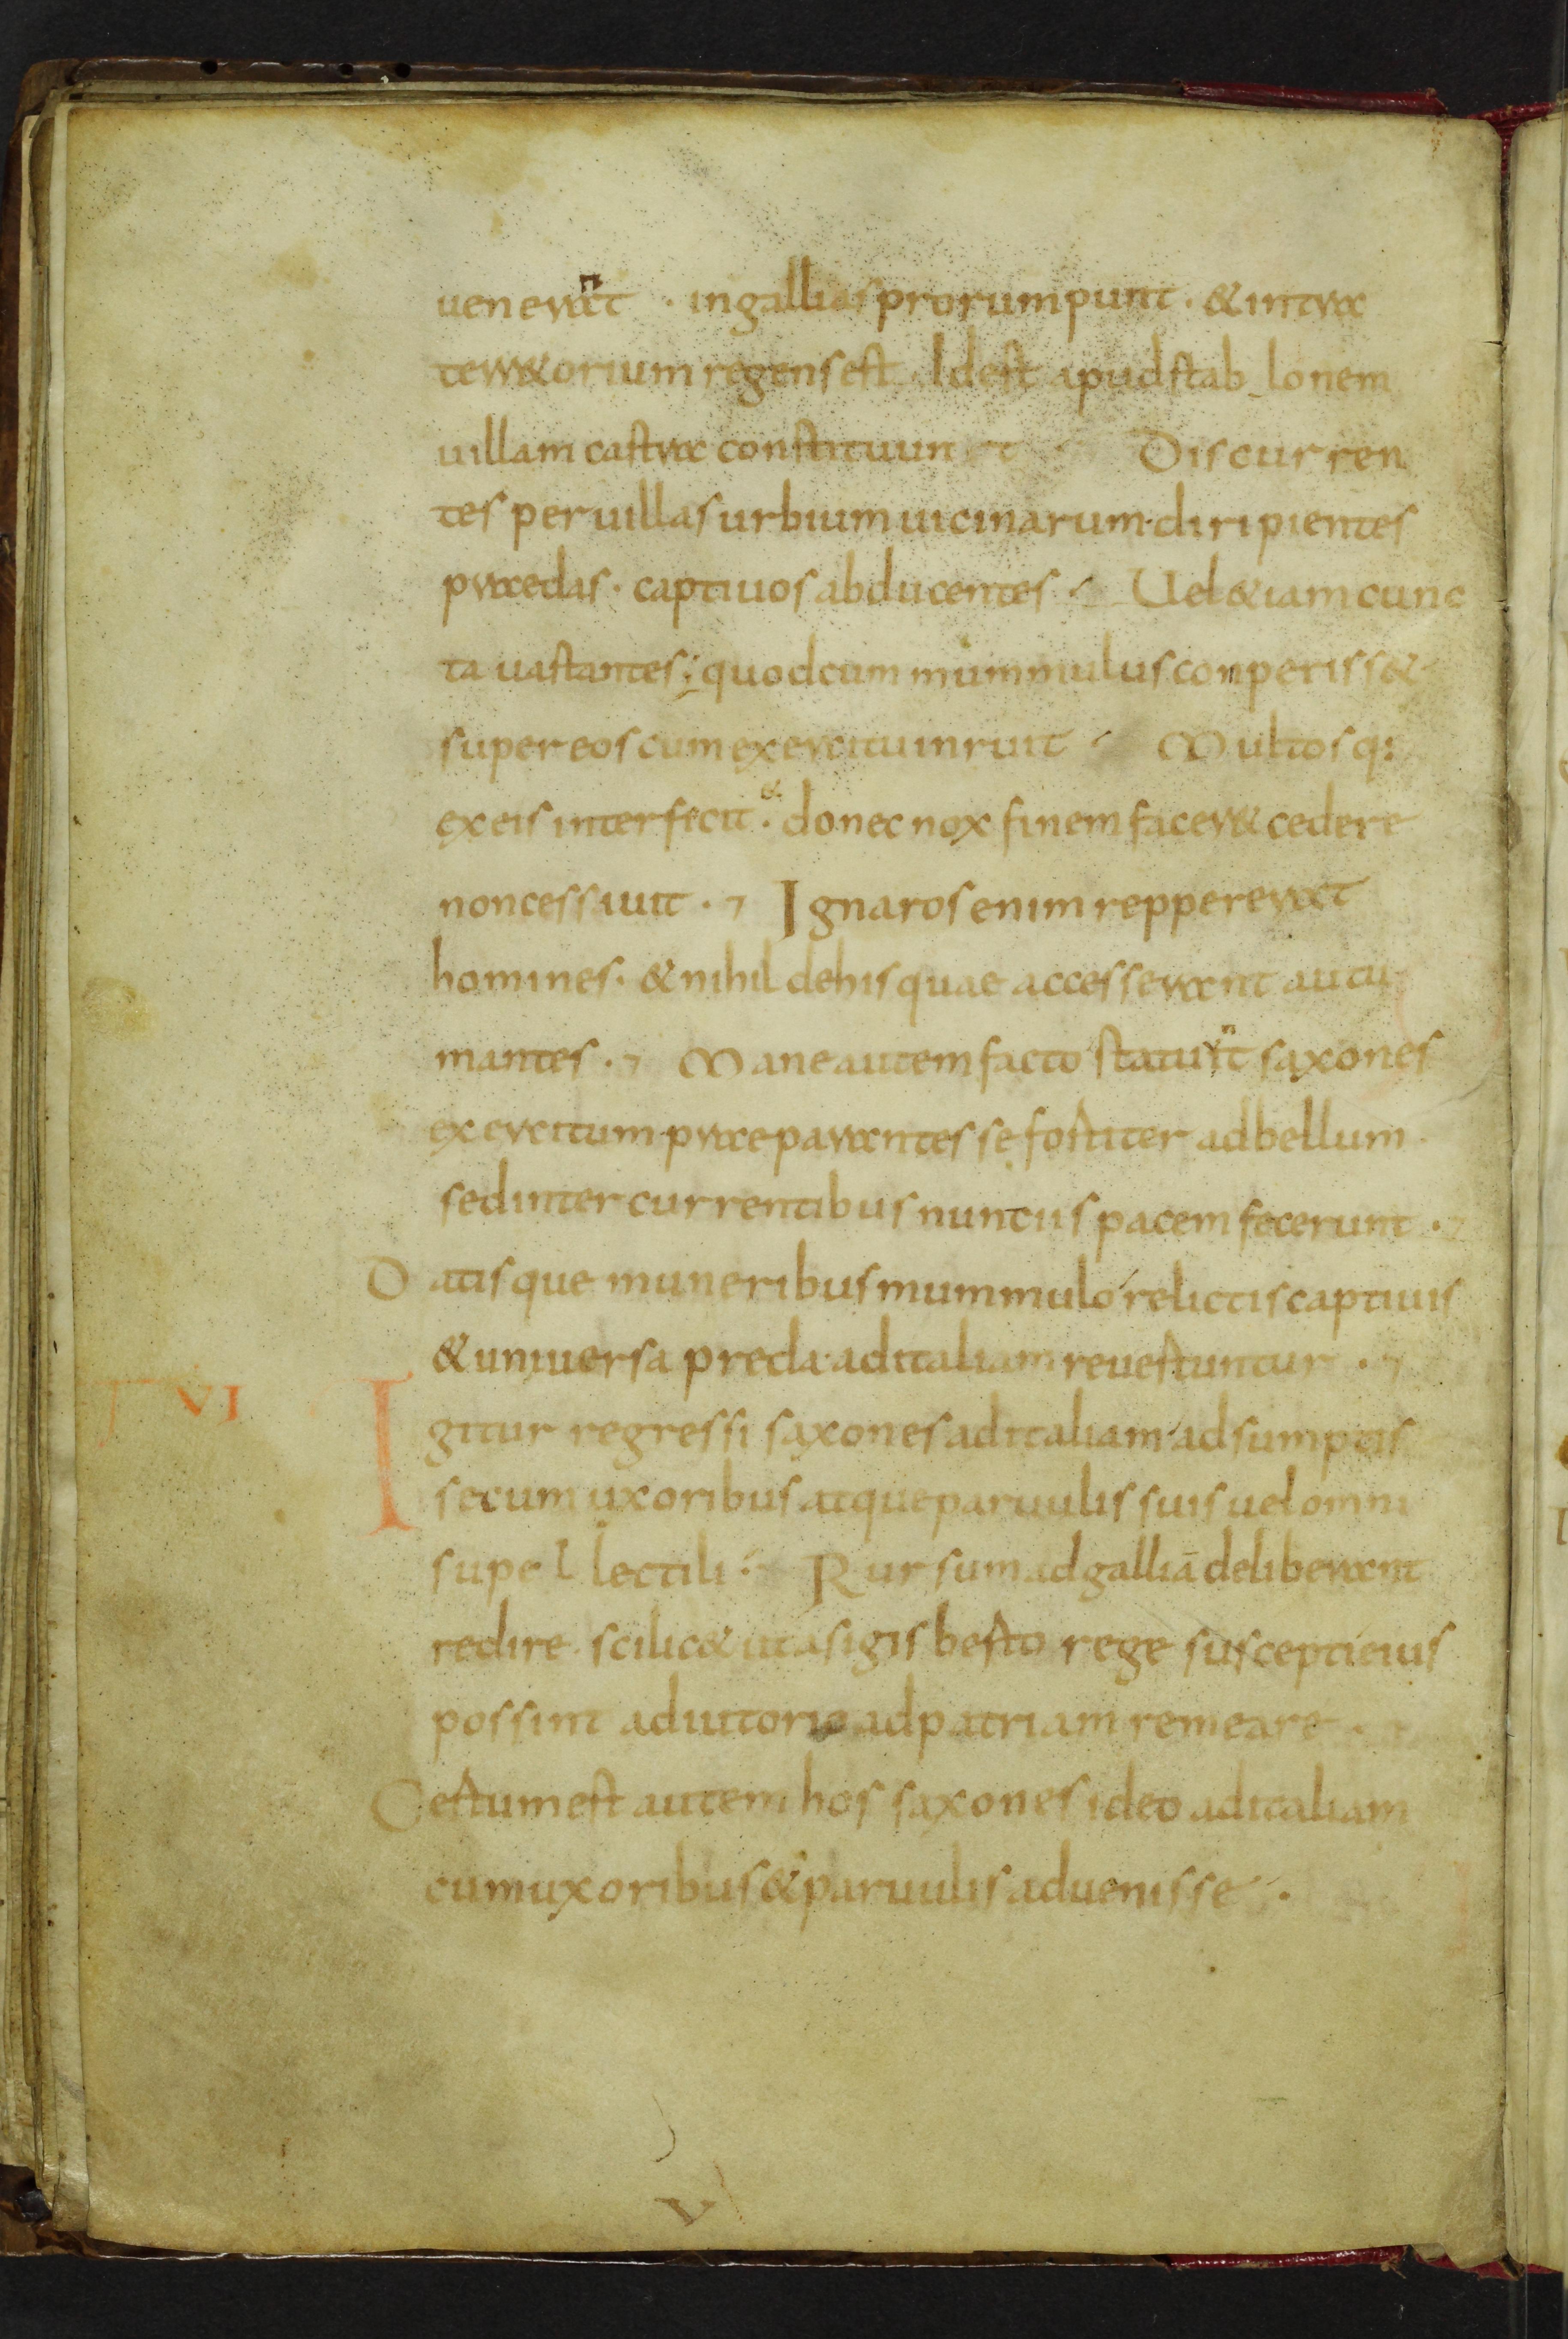 ueneraṅt · in gallias prorumpunt · & intra
terr& orium regens est · Idest apud stab lonem
uillam castra constituunt Discurren
tes per uillas urbium uicinarum · diripientes
praedas · captiuos abducentes · Uel &iam cunc
ta uastantes ; quod cum mummulus conperiss&
super eos cum exercitu inruit · Multosq;
ex eis interfecit · & donec nox finem facer& cedere
non cessauit · Ignaros enim reppererat
homines · & nihil de his quae accesserant autu
mantes · Mane autem facto statuṅt saxones
exercitum praeparantes se fortiter ad bellum
sed intercurrentibus nuntiis pacem fecerunt ·
Datisque muneribus mummulo relictis captiuis
& uniuersa preda · ad italiam reuertuntur ·
VI Igitur regressi saxones ad italiam adsumptis
secum uxoribus atque paruulis suis uel omni
supellectili · Rursum ad galliā deliberant
redire · scilic& ut a sigisberto rege suscepti eius
possint adiutorio ad patriam remeare ·
Certum est autem hos saxones ideo ad italiam
cum uxoribus & paruulis aduenisse ·
V